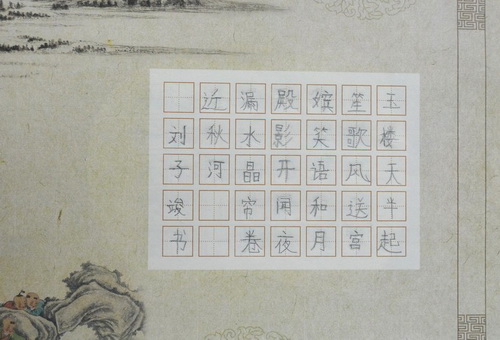 玉楼天半起
笙歌风送宫
嫔笑语和月
殿影开闻夜
漏水晶帘卷
近秋河
刘子竣书